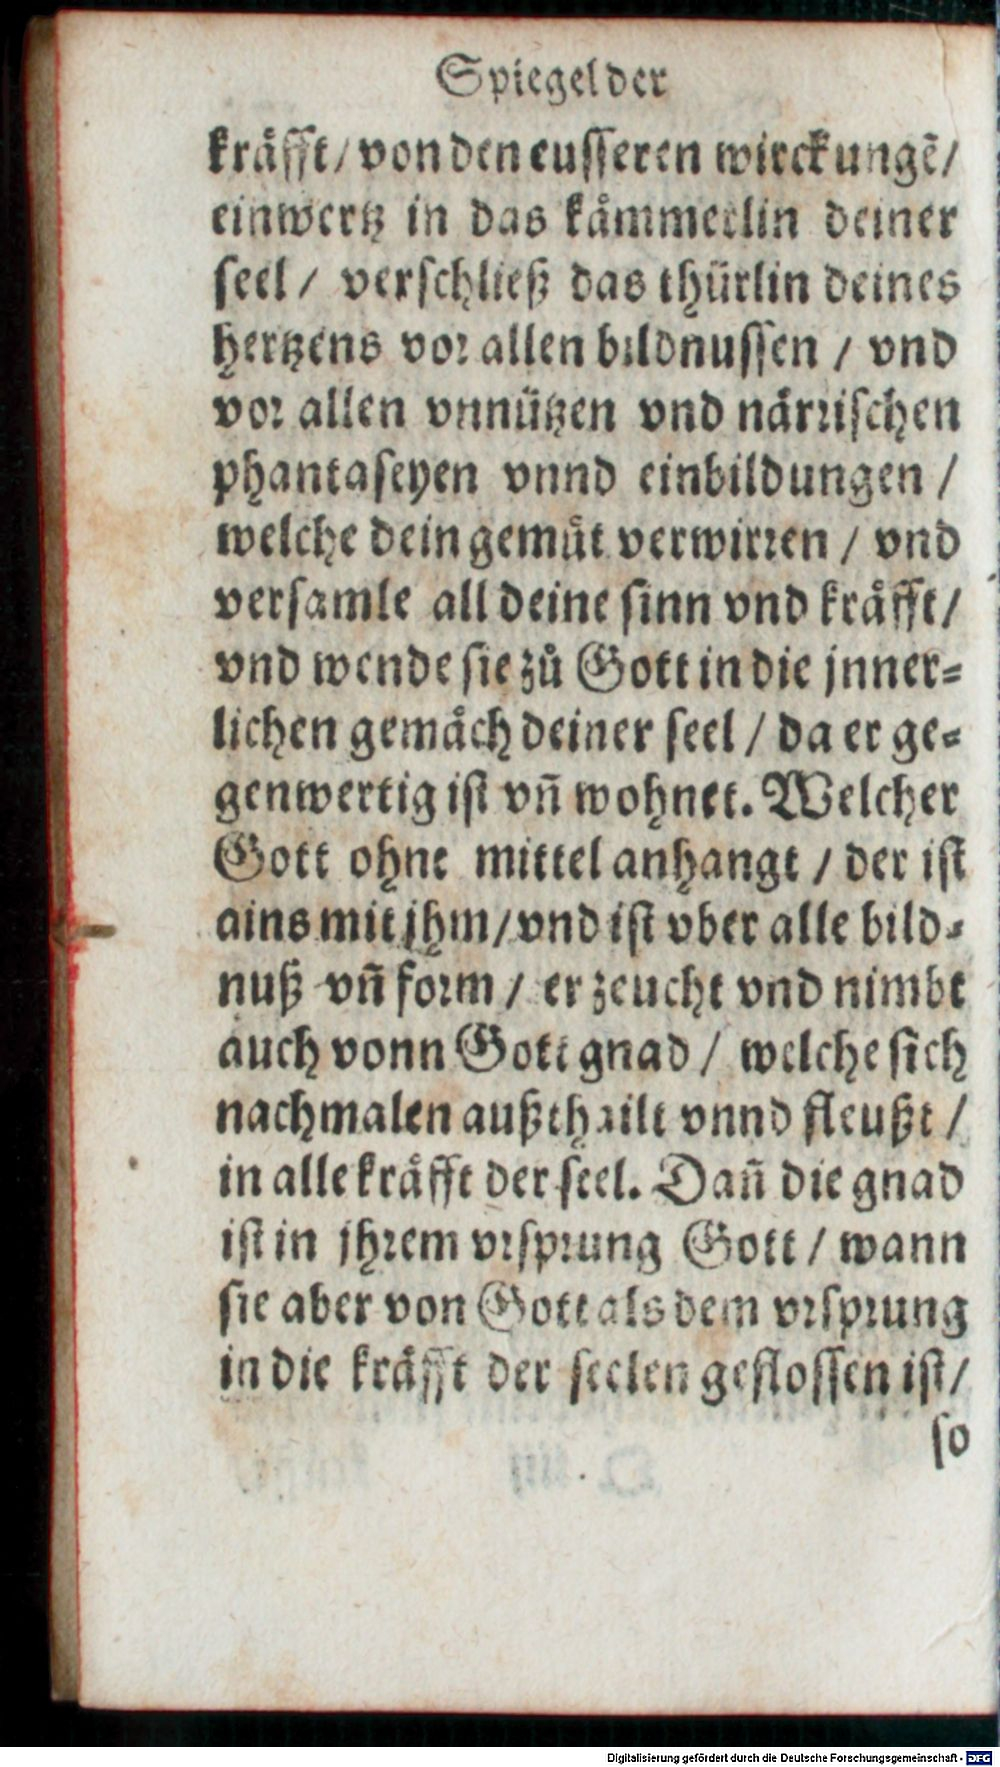 Spiegel der
kräfft / von den eusseren wirckungē /
einwertz in das kämmerlin deiner
seel / verschließ das thürlin deines
hertzens vor allen bildnussen / vnd
vor allen vnnützen vnd närrischen
phantaseyen vnnd einbildungen /
welche dein gemüt verwirren / vnd
versamle all deine sinn vnd kräfft /
vnd wende sie zů Gott in die jnner-
lichen gemäch deiner seel / da er ge-
genwertig ist vñ wohnet. Welcher
Gott ohne mittel anhangt / der ist
ains mit jhm / vnd ist vber alle bild-
nuß vñ form / er zeucht vnd nimbt
auch vonn Gott gnad / welche sich
nachmalen außthailt vnnd fleußt /
in alle kräfft der seel. Dañ die gnad
ist in jhrem vrsprung Gott / wann
sie aber von Gott als dem vrsprung
in die kräfft der seelen geflossen ist /
so
Digitalisierung gefördert durch die Deutsche Forschungsgemeinschaft - DFG